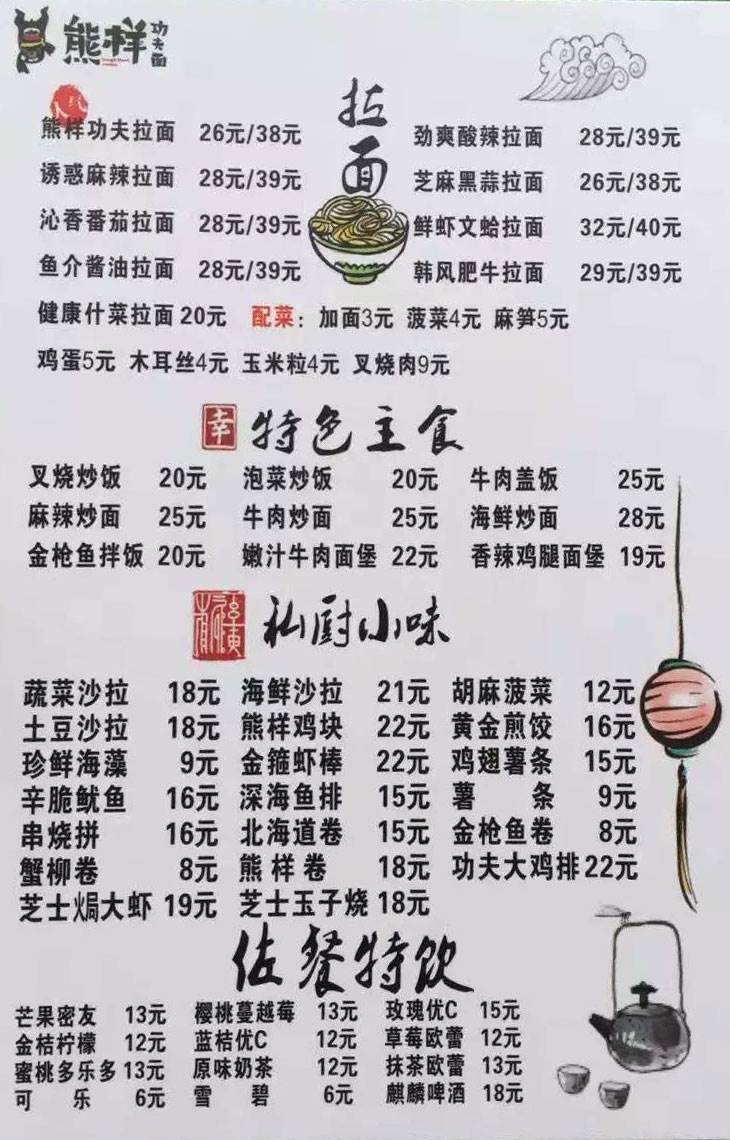 熊样 功夫面
拉面
熊样功夫拉面 26元/38元 劲爽酸辣拉面 28元/39元
诱惑麻辣拉面 28元/39元 芝麻黑蒜拉面 26元/38元
沁香番茄拉面 28元/39元 鲜虾文蛤拉面 32元/40元
鱼介酱油拉面 28元/39元 韩风肥牛拉面 29元/39元
健康什菜拉面 20元 配菜：加面3元 菠菜4元 麻笋5元
鸡蛋5元 木耳丝4元 玉米粒4元 叉烧肉9元
幸 特色主食
叉烧炒饭 20元 泡菜炒饭 20元 牛肉盖饭 25元
麻辣炒面 25元 牛肉炒面 25元 海鲜炒面 28元
金枪鱼拌饭 20元 嫩汁牛肉面堡 22元 香辣鸡腿面堡 19元
私厨小味
蔬菜沙拉 18元 海鲜沙拉 21元 胡麻菠菜 12元
土豆沙拉 18元 熊样鸡块 22元 黄金煎饺 16元
珍鲜海藻 9元 金箍虾棒 22元 鸡翅薯条 15元
辛脆鱿鱼 16元 深海鱼排 15元 薯条 9元
串烧拼 16元 北海道卷 15元 金枪鱼卷 8元
蟹柳卷 8元 熊样卷 18元 功夫大鸡排 22元
芝士焗大虾 19元 芝士玉子烧 18元
佐餐特饮
芒果密友 13元 樱桃蔓越莓 13元 玫瑰优C 15元
金桔柠檬 12元 蓝桔优C 12元 草莓欧蕾 12元
蜜桃多乐多 13元 原味奶茶 12元 抹茶欧蕾 13元
可乐 6元 雪碧 6元 麒麟啤酒 18元